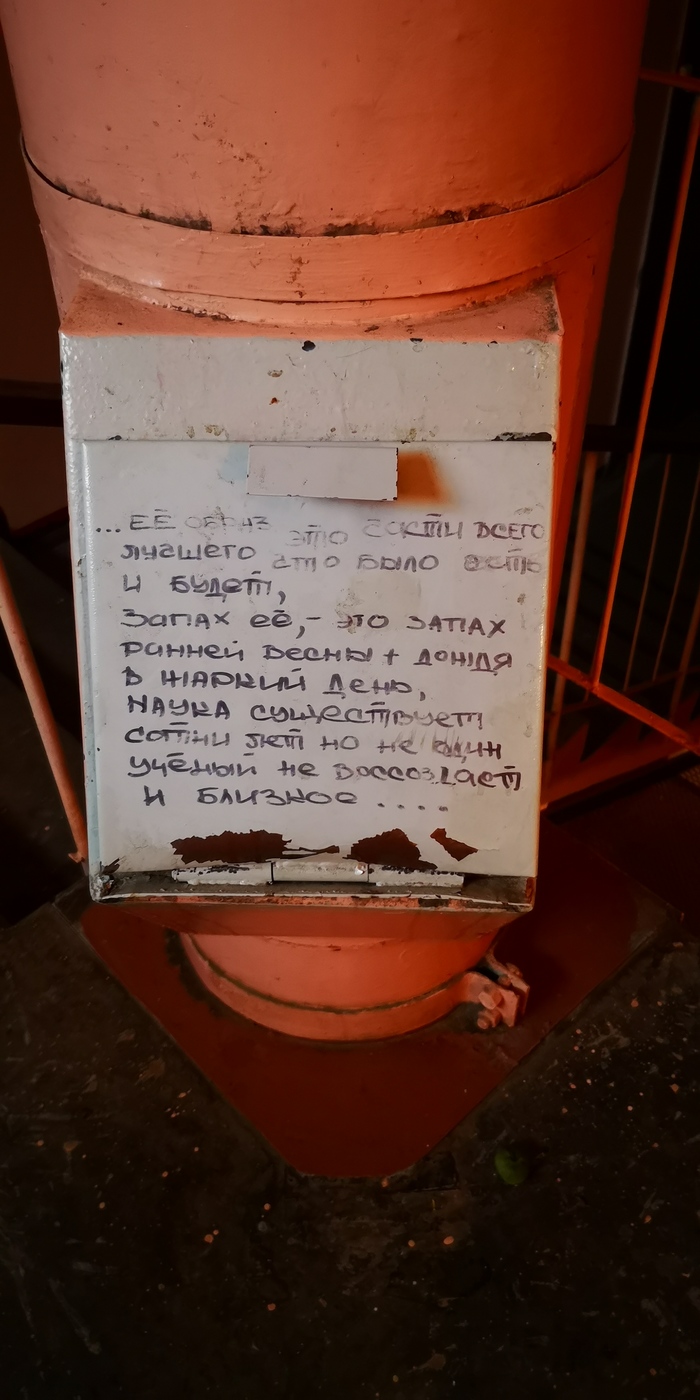 ...ЕЁ ОБРАЗ ЭТО ЧАСТИ ВСЕГО
лучшего что было есть
и будет,
Запах её,- это запах
ранней весны + дождя
в жаркий день,
Наука существует
сотни лет но не один
учёный не воссоздаст
и близкое ....